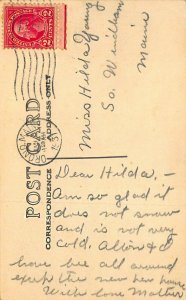 POST CARD
CORRESPONDENCE
ADDRESS ONLY
Miss Hilda Young
So. Windham
Maine
Dear Hilda,-
Am so glad it
does not snow
and is not very
cold.
have been all around
except the new
With love Mother